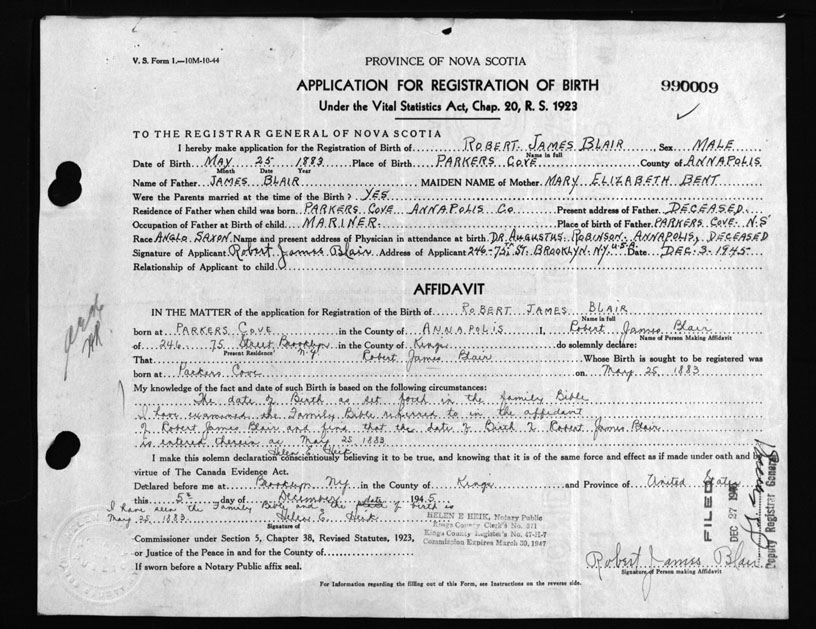 V. S. Form 1.—10M-10-44
PROVINCE OF NOVA SCOTIA
APPLICATION FOR REGISTRATION OF BIRTH
990009
Under the Vital Statistics Act, Chap. 20, R. S. 1923
TO THE REGISTRAR GENERAL OF NOVA SCOTIA
I hereby make application for the Registration of Birth of ROBERT JAMES BLAIR, Sex MALE
Name in full
Date of Birth MAY 25 1883 Place of Birth PARKERS COVE County of ANNAPOLIS
Month Date Year
Name of Father JAMES BLAIR MAIDEN NAME of Mother MARY ELIZABETH BENT
Were the Parents married at the time of the Birth? YES
Residence of Father when child was born PARKERS COVE ANNAPOLIS CO Present address of Father DECEASED
Occupation of Father at Birth of child MARINER Place of birth of Father PARKERS COVE N.S
Race ANGLO SAXON Name and present address of Physician in attendance at birth DR AUGUSTUS ROBINSON ANNAPOLIS, DECEASED
Signature of Applicant Robert James Blair Address of Applicant 246-75TH ST. BROOKLYN NY. U.S.A. Date DEC-3-1945
Relationship of Applicant to child
AFFIDAVIT
IN THE MATTER of the application for Registration of the Birth of ROBERT JAMES BLAIR
Name in full
born at PARKERS COVE in the County of ANNAPOLIS I, Robert James Blair
Name of Person Making Affidavit
of 246 75 Street Brooklyn N.Y. in the County of Kings do solemnly declare:
Present Residence
That Robert James Blair Whose Birth is sought to be registered was
born at Parkers Cove on May 25 1883
My knowledge of the fact and date of such Birth is based on the following circumstances:
The date of Birth as set forth in the family Bible
I have examined the Family Bible referred to in the affidavit
of Robert James Blair and find that the date of Birth of Robert James Blair
is entered therein as May 25 1883
Helen E. Heik
I make this solemn declaration conscientiously believing it to be true, and knowing that it is of the same force and effect as if made under oath and by
virtue of The Canada Evidence Act.
Declared before me at Brooklyn NY in the County of Kings and Province of United States
this 5th day of December 1945
I have seen the Family Bible and the date of birth is
May 25 1883 Helen E. Heik
Signature of
HELEN E HEIK, Notary Public
Kings County Clerk's No. 371
Kings County Register's No. 47-H-7
Commission Expires March 30, 1947
Commissioner under Section 5, Chapter 38, Revised Statutes, 1923,
or Justice of the Peace in and for the County of
If sworn before a Notary Public affix seal.
FILED DEC 27 1945
Deputy Registrar General
Robert James Blair
Signature of Person making Affidavit
For Information regarding the filling out of this Form, see Instructions on the reverse side.